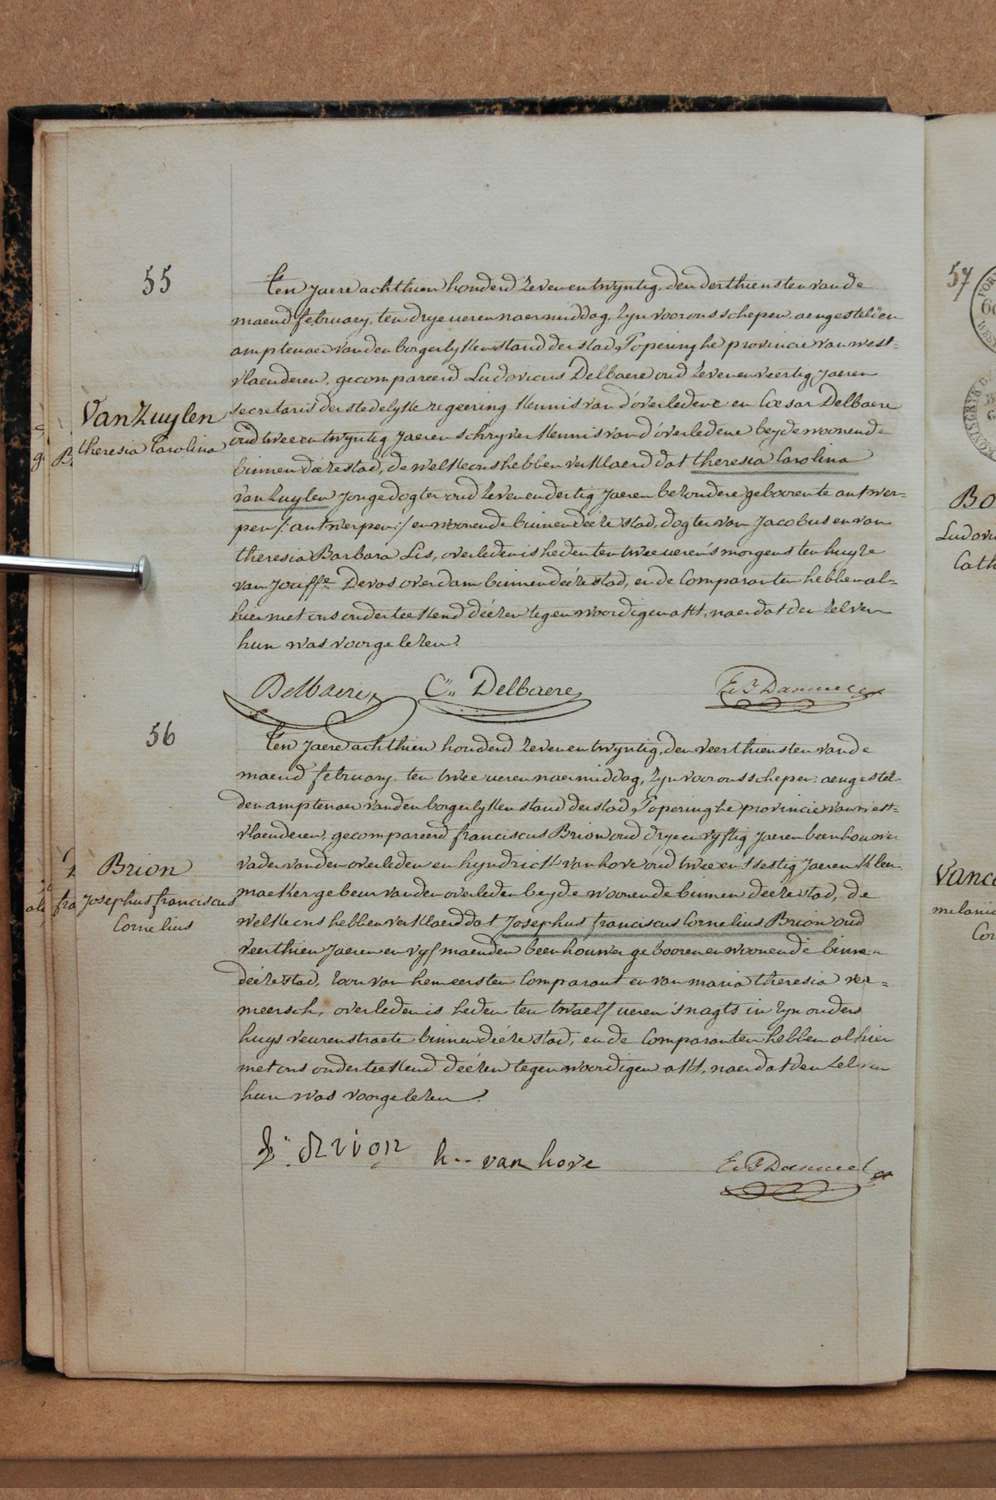 55
Van Zuylen
theresia Carolina
ten jaere achthien honderd zevenentwyntig, den derthiensten van de
maend february, ten drye ueren naermiddag, zyn voor ons schepen aengestelden
amptenaer van den borgerlyken stand der stad Poperinghe provincie van west=
vlaenderen, gecompareerd Ludovicus Delbaere oud zevenenveertig jaeren
secretaris der stedelyke regeering kennis van d'overledene en Cæsar Delbaere
oud twee en twyntig jaeren schryver kennis van d'overledene beyde woonende
binnen deéze stad, de welke ons hebben verklaerd dat theresia Carolina
van Zuylen jongedogter oud zevenendertig jaeren bezondere gebooren te antwer-
pen /: antwerpen :/ en woonende binnen deéze stad, dogter van Jacobus en van
theresia Barbara Lis, overleden is heden ten twee ueren 's morgens ten huyze
van Jouffe. Devos overdam binnen deéze stad, en de Comparanten hebben al=
hier met ons onderteekend deézen tegenwoordigen akt, naer dat den zelven
hun was voorgelezen.
Delbaere C. Delbaere
56
Brion
Josephus franciscus
Cornelius
ten jaere achthien honderd zevenentwyntig, den veerthiensten van de
maend february, ten twee ueren naermiddag, zyn voor ons schepen aengestel-
den amptenaer van den borgerlyken stand der stad Poperinghe provincie van west-
vlaenderen, gecompareerd franciscus Brion oud dryenvyftig jaeren beenhouwer
vader van den overleden en hyndrick van hove oud twee en tsestig jaeren
maeker gebeur van den overleden beyde woonende binnen deéze stad, de
welke ons hebben verklaerd dat Josephus franciscus Cornelius Brion oud
veerthien jaeren en vyf maenden beenhouwer gebooren en woonende binnen
deéze stad, zoon van hem eersten Comparant en van maria theresia ver=
meersch, overleden is heden ten twaelf ueren 's nagts in zyn ouders
huys veurenstraete binnen deéze stad, en de Comparanten hebben alhier
met ons onderteekend deézen tegenwoordigen akt, naer dat den zelven
hun was voorgelezen.
Brion h. van hove
57
Bo
Ludov
Cath
Vanc
melanie
Cor